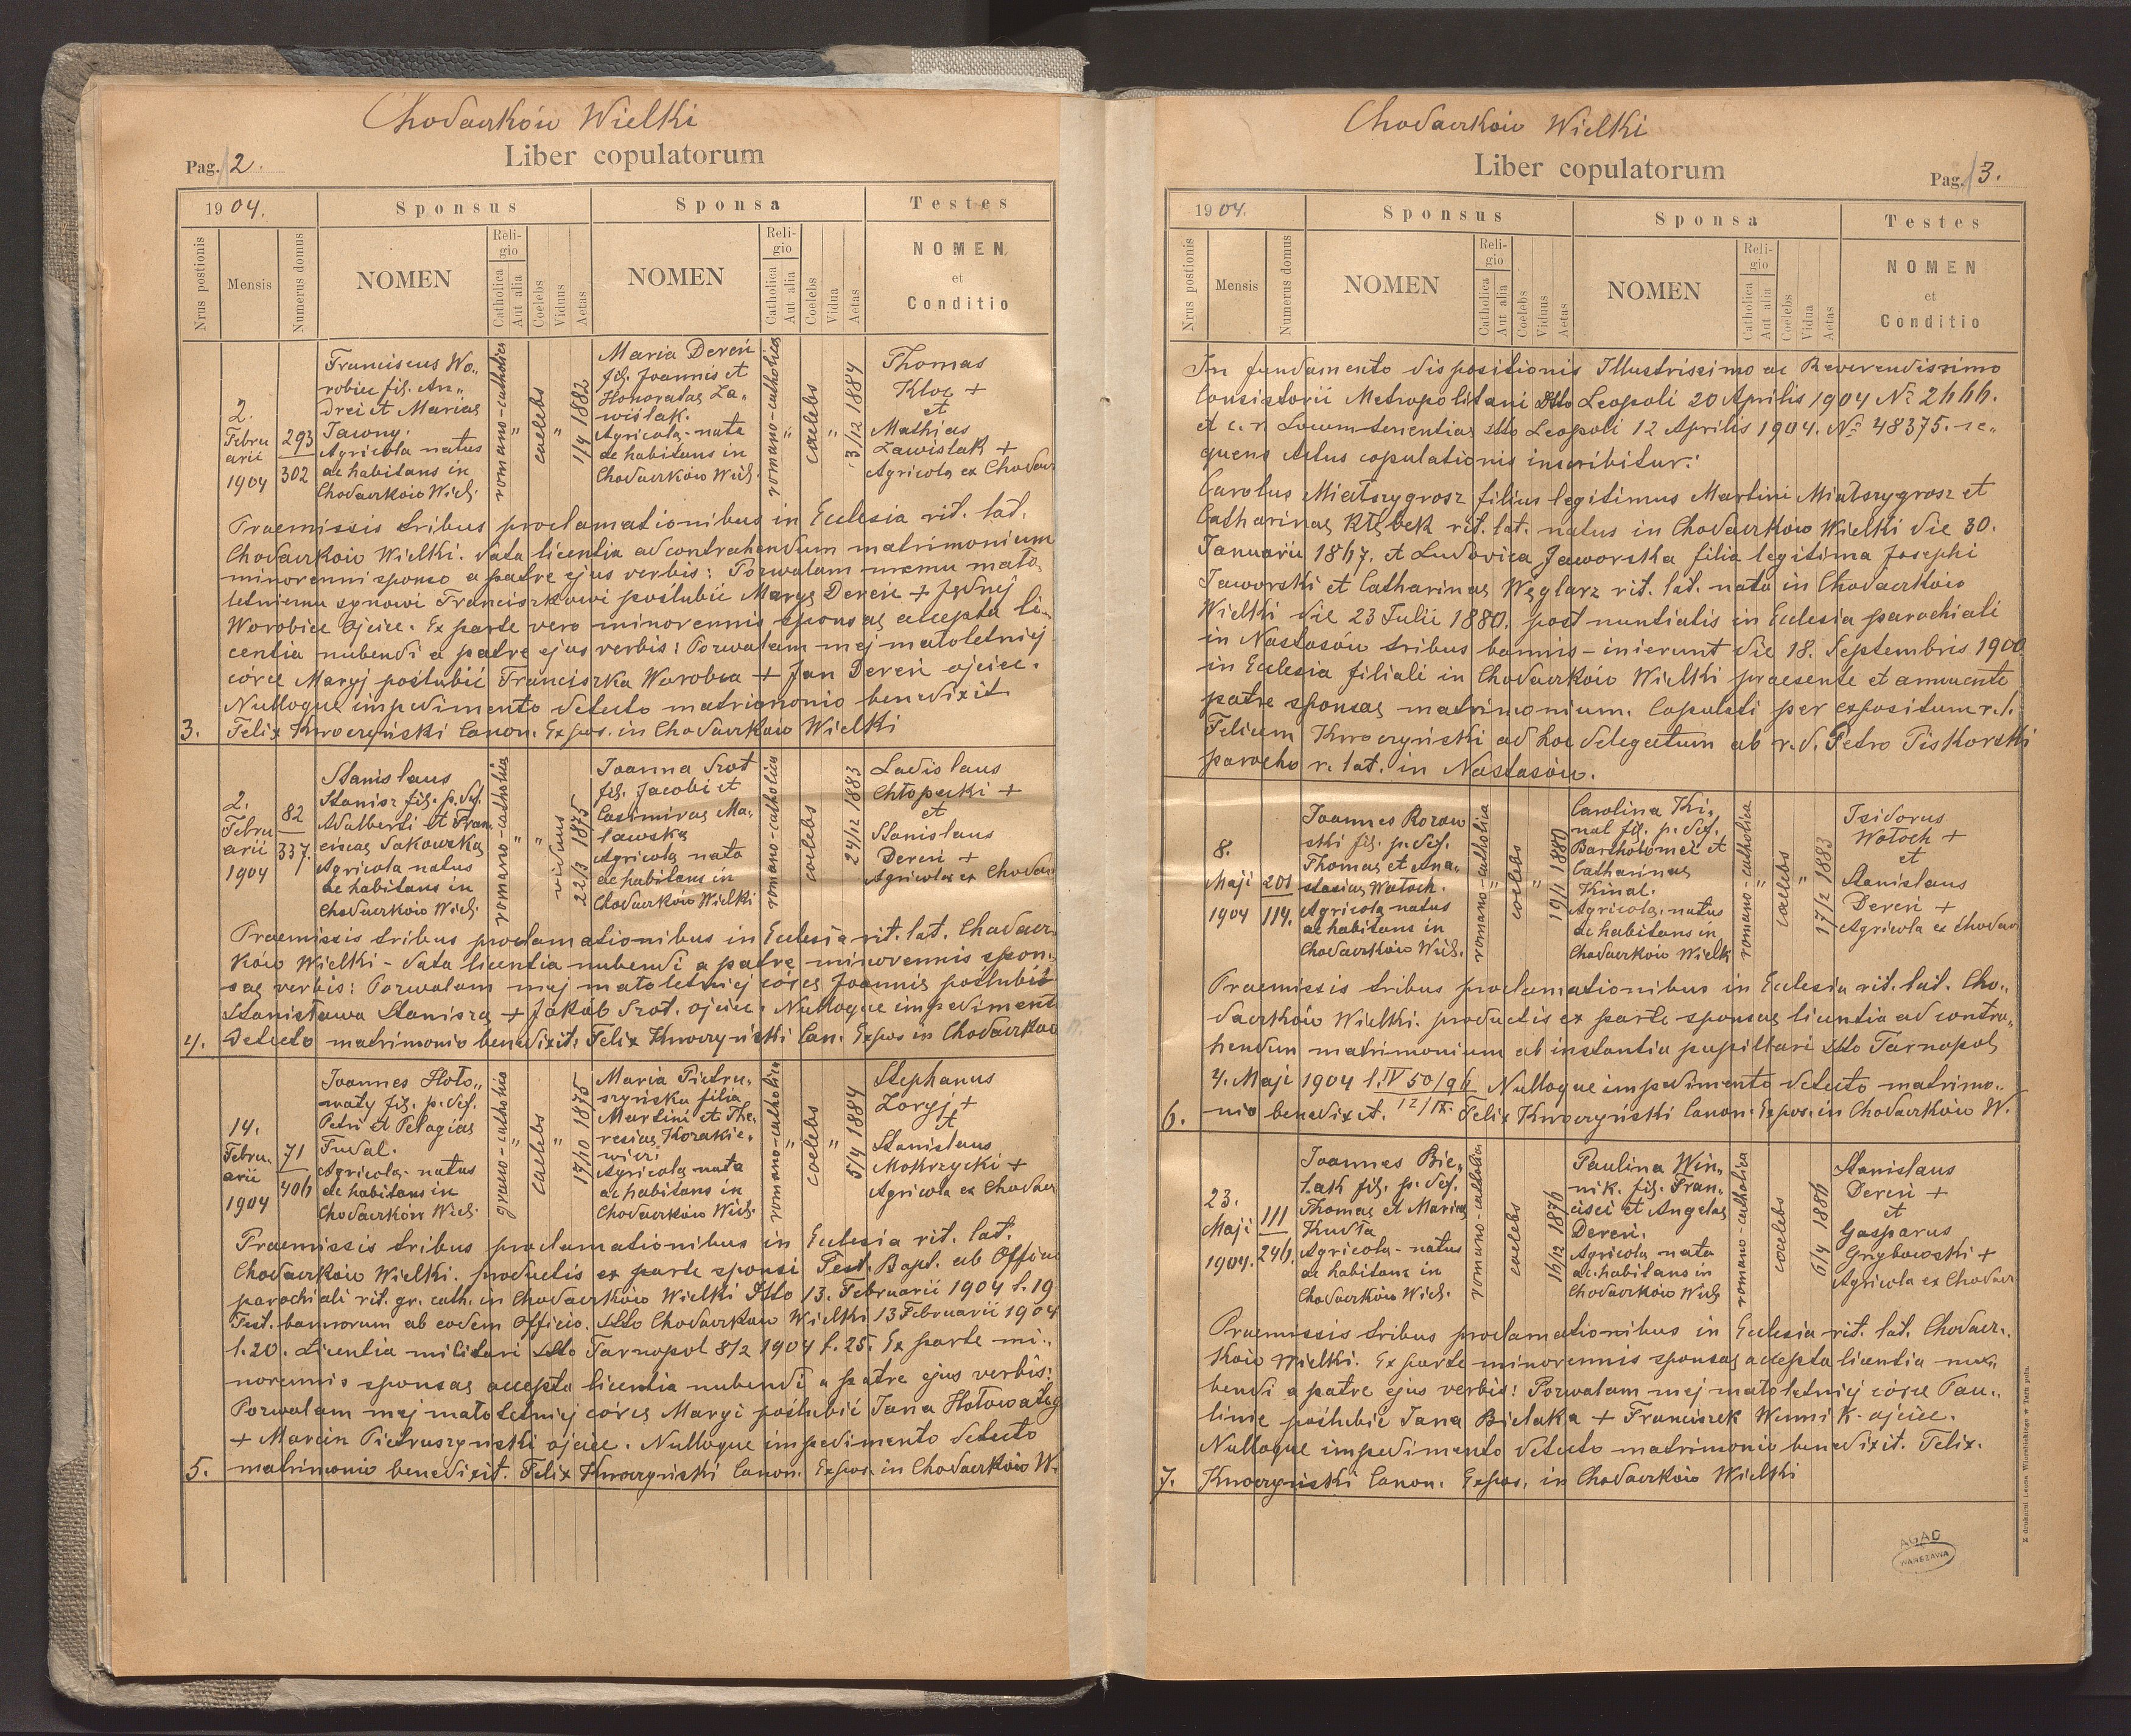 Chodaczków Wielki
Pag. 2.
Liber copulatorum
1904.
Sponsus
Sponsa
Testes
Nrus postionis
Mensis
Numerus domus
NOMEN
Religio
Catholica
Aut alia
Coelebs
Viduus
Aetas
NOMEN
Religio
Catholica
Aut alia
Coelebs
Vidua
Aetas
NOMEN
et
Conditio
2.
Febru
arii
1904
293
302
Franciscus Wo„
robiec fil. An„
drei et Mariae
Jacony.
Agricola natus
ac habitans in
Chodaczków Wiel.
romano-catholica
"
coelebs
"
1/4 1882
Maria Dereń
fil. Joannis et
Honoratae Ła„
wiślak.
Agricola nata
ac habitans in
Chodaczków Wiel.
romano-catholica
"
coelebs
"
3/12 1884
Thomas
Kloc +
et
Mathias
Ławislak +
Agricola ex Chodacz
Praemissis tribus proclamationibus in Ecclesia rit. lat.
Chodaczków Wielki. data licentia ad contrahendum matrimonium
minorenni sponso a patre ejus verbis: Pozwalam memu mało„
letniemu synowi Franciszkowi poślubić Maryę Dereń + Jędrzej
Worobiec Ojciec. Ex parte vero minorennis sponsae accepta li„
centia nubendi a patre ejus verbis: Pozwalam mej małoletniej
córce Maryi poślubić Franciszka Worobca + Jan Dereń ojciec.
Nulloque impedimento detecto matrimonio benedixit
3. Felix Kwoczyński Canon. Expos. in Chodaczków Wielki
2.
Febru
arii
1904
82
337.
Stanislaus
Stanisz fil. p. def.
Adalberti et Fran
ciscae Sakowska
Agricola natus
ac habitans in
Chodaczków Wiel.
romano-catholica
"
"
viduus
22/3 1875
Joanna Szot
fil. Jacobi et
Casimirae Ma„
lawska
Agricola nata
ac habitans in
Chodaczków Wielki
romano-catholica
coelebs
24/12 1883
Ladislaus
Chłopecki +
et
Stanislaus
Dereń +
Agricolae ex Chodacz
Praemissis tribus proclamationibus in Ecclesia rit. lat. Chodacz
ków Wielki - data licentia nubendi a patre minorennis spon„
sae verbis: Pozwalam mej małoletniej córce Joannie poślubić
Stanisława Stanisza + Jakób Szot. ojciec. Nulloque impediment
4. detecto matrimonio benedixit: Felix Kwoczyński Can. Expos in Chodaczków
14.
Febru.
arii
1904
71
406
Joannes Hoło„
waty fil. p. def.
Petri et Pelagiae
Fudal.
Agricola natus
ac habitans in
Chodaczków Wiel.
graeco-catholica
"
coelebs
"
17/10 1875
Maria Pietru„
szyńska filia
Martini et The„
resiae Kozakie„
wicz.
Agricola nata
ac habitans in
Chodaczków Wiel.
romano-catholica
"
coelebs
"
5/4 1884
Stephanus
Zoryj +
et
Stanislaus
Mokrzycki +
Agricola ex Chodacz
Praemissis tribus proclamationibus in Ecclesia rit. lat.
Chodaczków Wielki. productis ex parte sponsi Test. Bapt. ab Officio
parochiali rit. gr. cath. in Chodaczków Wielki ddto 13. Februarii 1904 l. 19
Test. bannorum ab eodem Officio. ddto Chodaczków Wielki 13 Februarii 1904
l. 20. Licentia militari ddto Tarnopol 8/2 1904 l. 25. Ex parte mi„
norennis sponsae accepta licentia nubendi a patre ejus verbis:
Pozwalam mej małoletniej córce Maryi poślubić Jana Hołowateg
+ Marcin Pietruszyński ojciec. Nulloque impedimento detecto
5. matrimonio benedixit. Felix Kwoczyński Canon. Expos. in Chodaczków W.
Chodaczków Wielki
Liber copulatorum
Pag. 3.
1904.
Sponsus
Sponsa
Testes
Nrus postionis
Mensis
Numerus domus
NOMEN
Religio
Catholica
Aut alia
Coelebs
Viduus
Aetas
NOMEN
Religio
Catholica
Aut alia
Coelebs
Vidua
Aetas
NOMEN
et
Conditio
In fundamento dispositionis Illustrissimo ac Reverendissimo
Consistorii Metropolitani Ddto Leopoli 20 Aprilis 1904 No 2666.
et c. r. Locumtenentiae ddto Leopoli 12 Aprilis 1904. No 48375. se„
quens Actus copulationis inscribitur:
Carolus Miałszygrosz filius legitimus Martini Miałszygrosz et
Catharinae Kłębek rit. lat. natus in Chodaczków Wielki die 30.
Januarii 1867. et Ludovica Jaworska filia legitima Josephi
Jaworski et Catharinae Węglarz rit. lat. nata in Chodaczków
Wielki die 23 Julii 1880. post nuntiatis in Ecclesia parochiali
in Nastasów tribus bannis - inierunt die 18. Septembris 1900.
in Ecclesia filiali in Chodaczków Wielki praesente et annuente
patre sponsae matrimonium. Copulati per expositum r. l.
Felicem Kwoczyński ad hoc delegatum ab r. d. Petro Piskorski
parocho r. lat. in Nastasów.
8.
Maji
1904
201
114.
Joannes Rozow
ski fil. p. def.
Thomae et Ana„
stasiae Wałoch.
Agricola natus
ac habitans in
Chodaczków Wiel.
romano-catholica
"
coelebs
"
19/1 1880
Carolina Ki„
nal fil. p. def.
Bartholomei et
Catharinae
Kinal.
Agricola natus
ac habitans in
Chodaczków Wielk
romano-catholica
"
coelebs
"
17/2 1883
Isidorus
Wołoch +
et
Stanislaus
Dereń +
Agricola ex Chodacz
Praemissis tribus proclamationibus in Ecclesia rit. lat. Cho„
daczków Wielki. productis ex parte sponsae licentia ad contra„
hendum matrimonium ab instantia pupillari ddto Tarnopol
4. Maji 1904 l. IV 50/96 Nulloque impedimento detecto matrimo„
6. nio benedixit. 12/IX. Felix Kwoczyński Canon. Expos. in Chodaczków W.
23.
Maji
1904.
111
246.
Joannes Bie„
lak fil. p. def.
Thomae et Mariae
Kudła
Agricola - natus
ac habitans in
Chodaczków Wiel.
romano-catholica
coelebs
16/12 1876
Paulina Win„
nik. fil. Fran„
cisci et Angelae
Dereń.
Agricola nata
ac habitans in
Chodaczków Wiel
romano-catholica
coelebs
6/4 1886
Stanislaus
Dereń +
et
Gasparus
Grybowski +
Agricola ex Chodacz
Praemissis tribus proclamationibus in Ecclesia rit. lat. Chodacz„
ków Wielki. Ex parte minorennis sponsae accepta licentia nu„
bendi a patre ejus verbis: Pozwalam mej małoletniej córce Pau„
linie poślubić Jana Bielaka + Franciszek Winnik. ojciec.
Nulloque impedimento detecto matrimonio benedixit. Felix.
7. Kwoczyński Canon. Expos. in Chodaczków Wielki
AGAD
WARSZAWA
Z drukarni Leona Wierzbickiego w Tarnopolu.